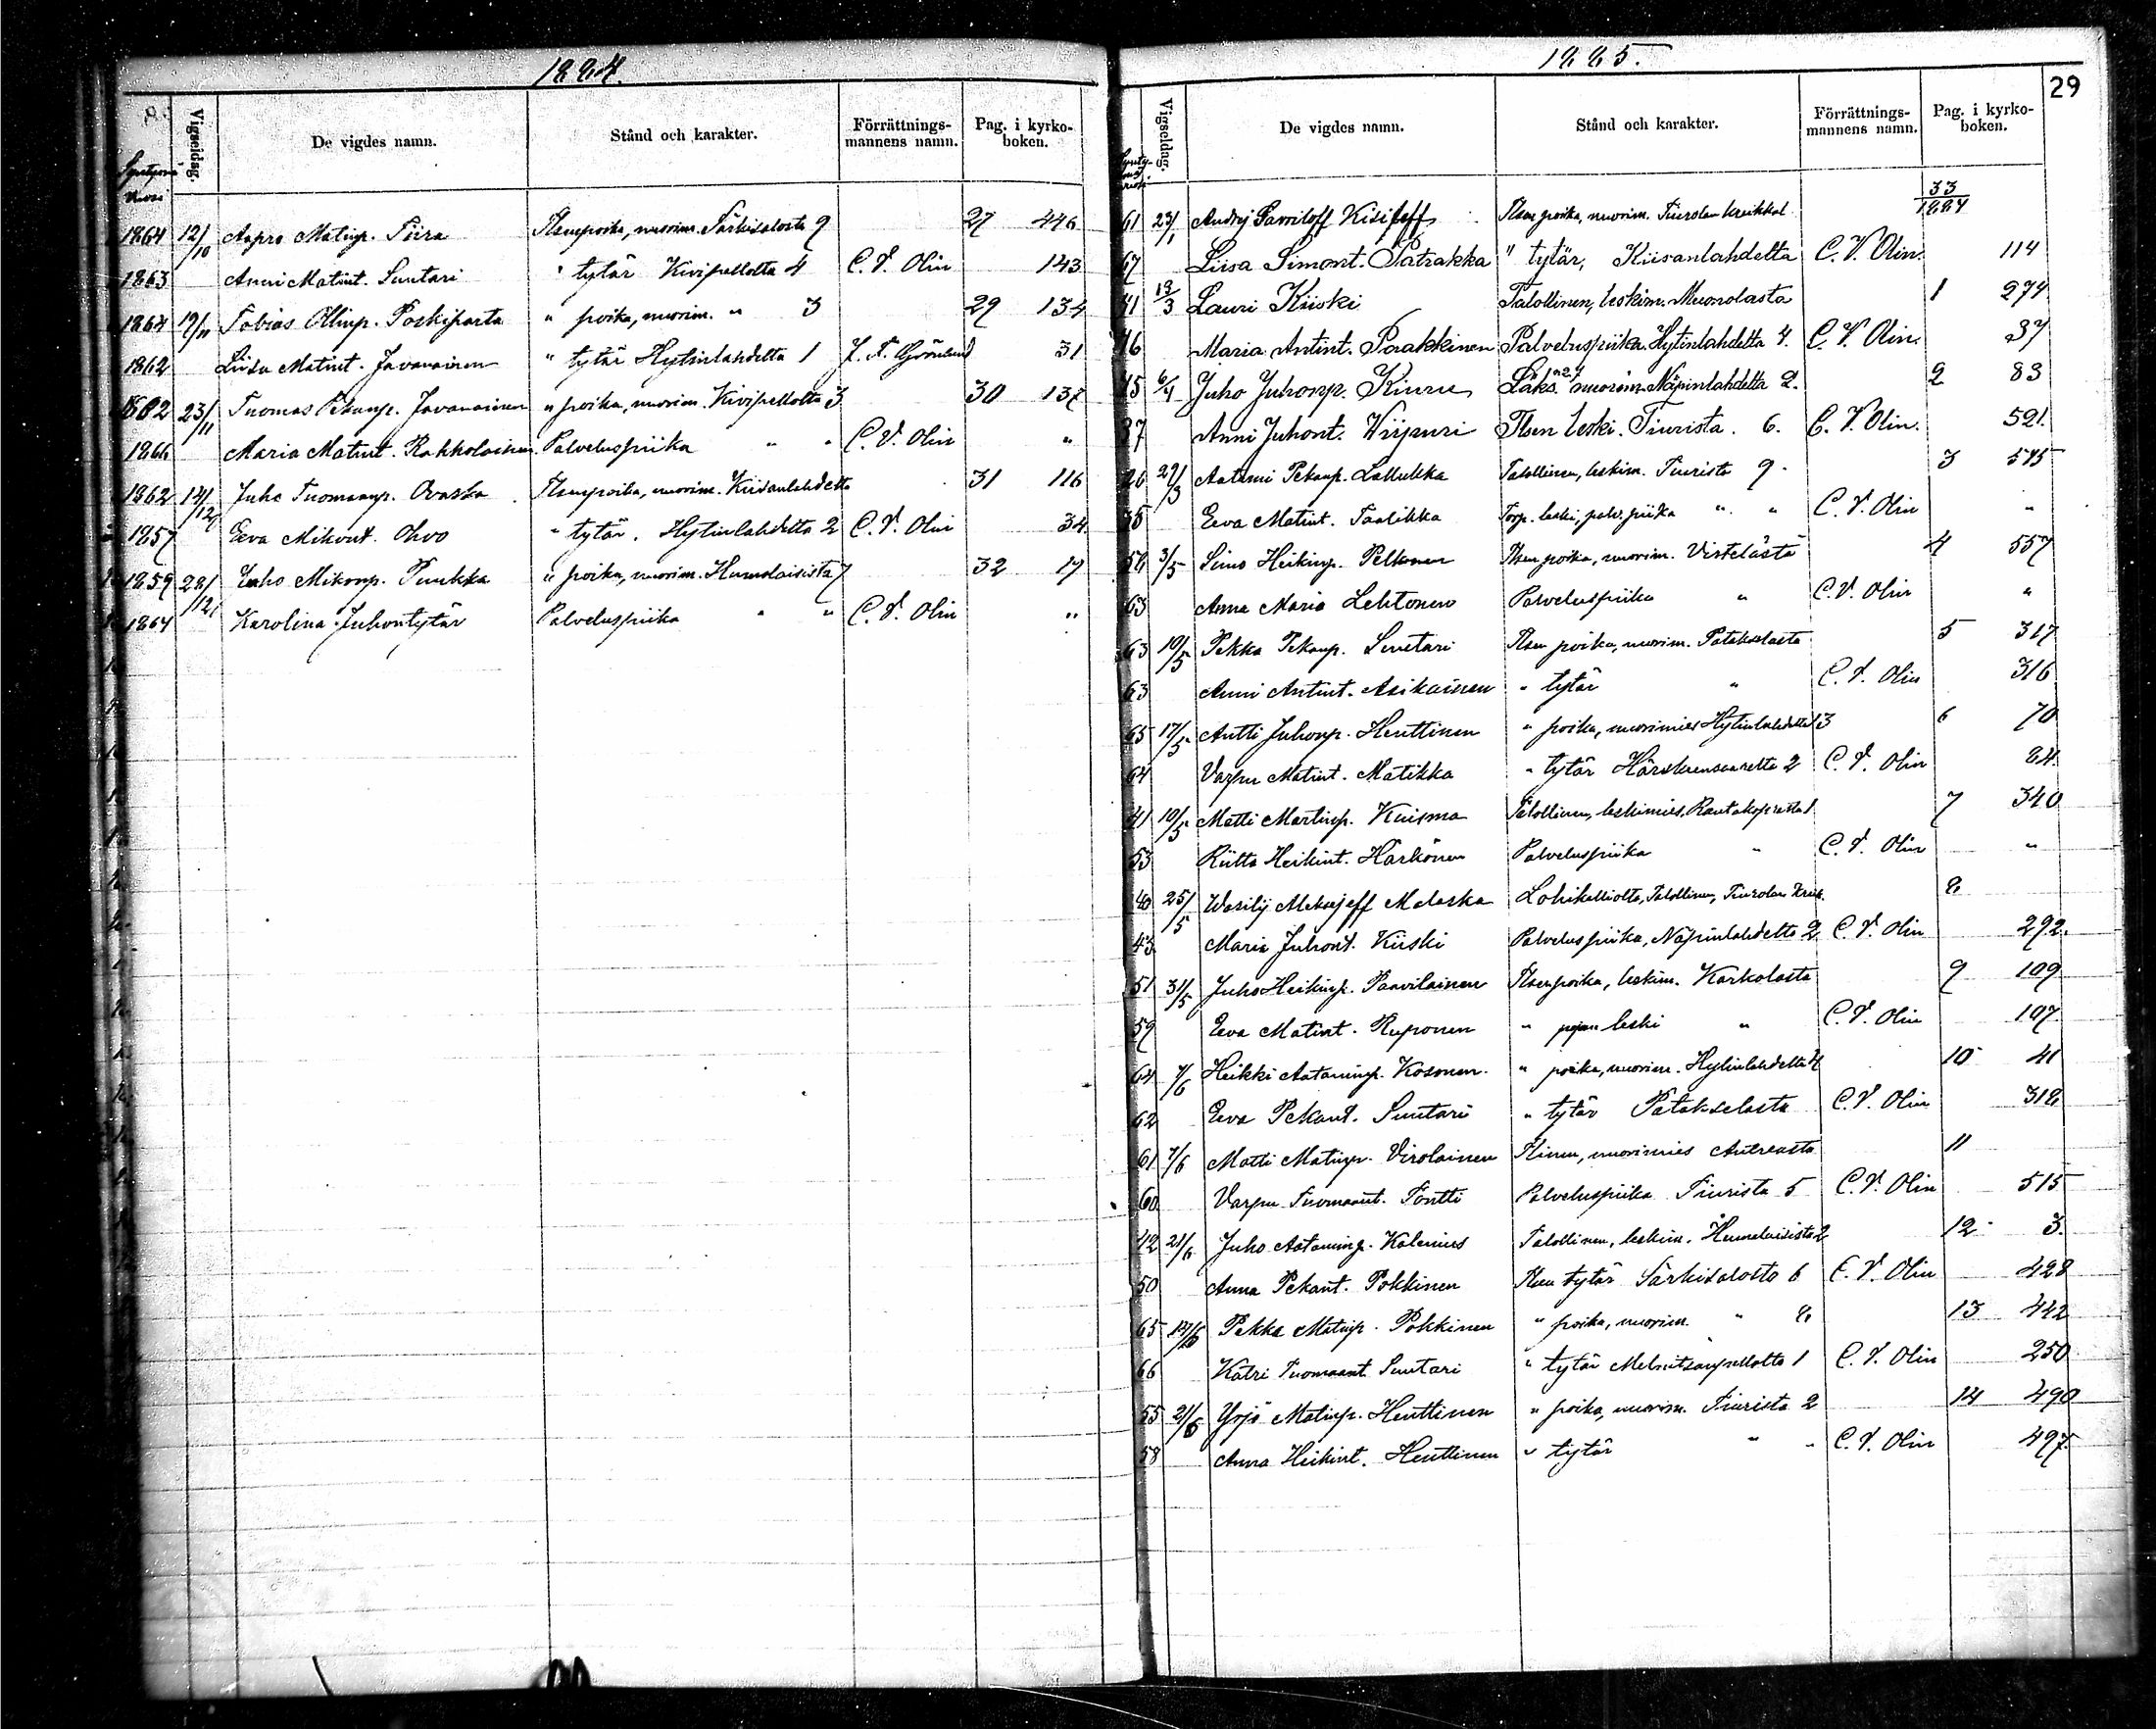 1884.
Syntymä Vuosi
Vigseldag.
De vigdes namn.
Stånd och karakter.
Förrättningsmannens namn.
Pag. i kyrkoboken.
1864 12/10 Aapro Matinp. Tiira Tlsenpoika, nuorim. Särkisalosta 9 27 446
1863 Anni Matint. Suutari " tytär Kivipellolta 4 C. V. Olin 143
1864 19/11 Tobias Ollinp. Poskiparta " poika, nuorim. " 3 29 134
1862 Liisa Matint. Javanainen " tytär Hytinlahdelta 1 31
1862 23/11 Tuomas Pekanp. Javanainen " poika, nuorim. Kivipellolta 3 30 137
1866 Maria Matint. Rahkolainen Palveluspiika " " C. V. Olin "
1862 14/12 Juho Tuomaanp. Ovaska Tlsenpoika, nuorim. Kiisanlahdelta 31 116
1857 Eeva Mikont. Ohvo " tytär. Hytinlahdelta 2 C. V. Olin 34
1859 28/12 Juho Mikonp. Puukka " poika, nuorim. Humalaisista 7 32 17
1864 Karolina Juhontytär Palveluspiika " " C. V. Olin "
1885.
29
Vigseldag.
De vigdes namn.
Stånd och karakter.
Förrättningsmannens namn.
Pag. i kyrkoboken.
61 23/1 Andrej Gavriloff Kisiseff Tlsen poika, nuorim. Tiurulan kreikkal. 33/1884
67 Liisa Simont. Patrakka " tytär, Kiisanlahdelta C. V. Olin. 114
41 18/3 Lauri Kiiski Talollinen, leskim. Muonolasta 1 274
46 Maria Antint. Paakkinen Palveluspiika. Hytinlahdelta 4. C. V. Olin. 37
45 6/4 Juho Juhonp. Kiuru nuorim. Näpinlahdelta 2. 2 83
37 Anni Juhont. Wiipuri Tlsen leski. Tiurista. 6. C. V. Olin. 521.
26 29/3 Aatami Pekanp. Lallukka Talollinen, leskim. Tiurista 9. 3 545
38 Eeva Matint. Taalikka Torp. leski, palv. piika " " C. V. Olin "
56 3/5 Simo Heikinp. Peltonen Tlsen poika, nuorim. Vistelästä 4 557
63 Anna Maria Lehtonen Palveluspiika " C. V. Olin "
63 10/5 Pekka Pekanp. Suutari Tlsen poika, nuorim. Patakselasta 5 317
63 Anni Antint. Asikainen " tytär " C. V. Olin 316
65 17/5 Antti Juhonp. Henttinen " poika, nuorimies Hytinlahdelta 3 6 70
64 Varpu Matint. Matikka " tytär 2 C. V. Olin 84
41 10/5 Matti Martinp. Kuisma Talollinen, leskimies. 7 340
53 Riitta Heikint. Härkönen Palveluspiika " C. V. Olin "
40 25/5 Wasilij Aleksejeff Malaska Lohikalliolta, Talollinen, Tiurulan Kreik. 8
43 Maria Juhont. Kiiski Palveluspiika, Näpinlahdelta 2 C. V. Olin 292.
51 31/5 Juho Heikinp. Paavilainen Tlsenpoika, leskim. Karkolasta 9 109
59 Eeva Matint. Reponen " pojan leski " C. V. Olin 107
64 7/6 Heikki Aataminp. Kosonen. " poika, nuorim. Hytinlahdelta 4 10 41
62 Eeva Pekant. Suutari " tytär Patakselasta C. V. Olin 318
61 7/6 Matti Matinp. Virolainen Tlinen, nuorimies Antreasta 11
60 Varpu Tuomaant. Tontti Palveluspiika Tiurista 5 C. V. Olin 515
42 21/6 Juho Aataminp. Kolenius Talollinen, leskim. Humalaisista 2 12 3.
50 Anna Pekant. Pokkinen Tlsen tytär Särkisalosta 6 C. V. Olin 428
65 Pekka Matinp. Pokkinen " poika, nuorim. " 8 13 442
66 Katri Tuomaant Suutari " tytär Melnitsanpellolta 1 C. V. Olin 250
55 21/6 Yrjö Matinp. Henttinen " poika, nuorim. Tiurista 2 14 490
58 Anna Heikint. Henttinen " tytär " " C. V. Olin 497.